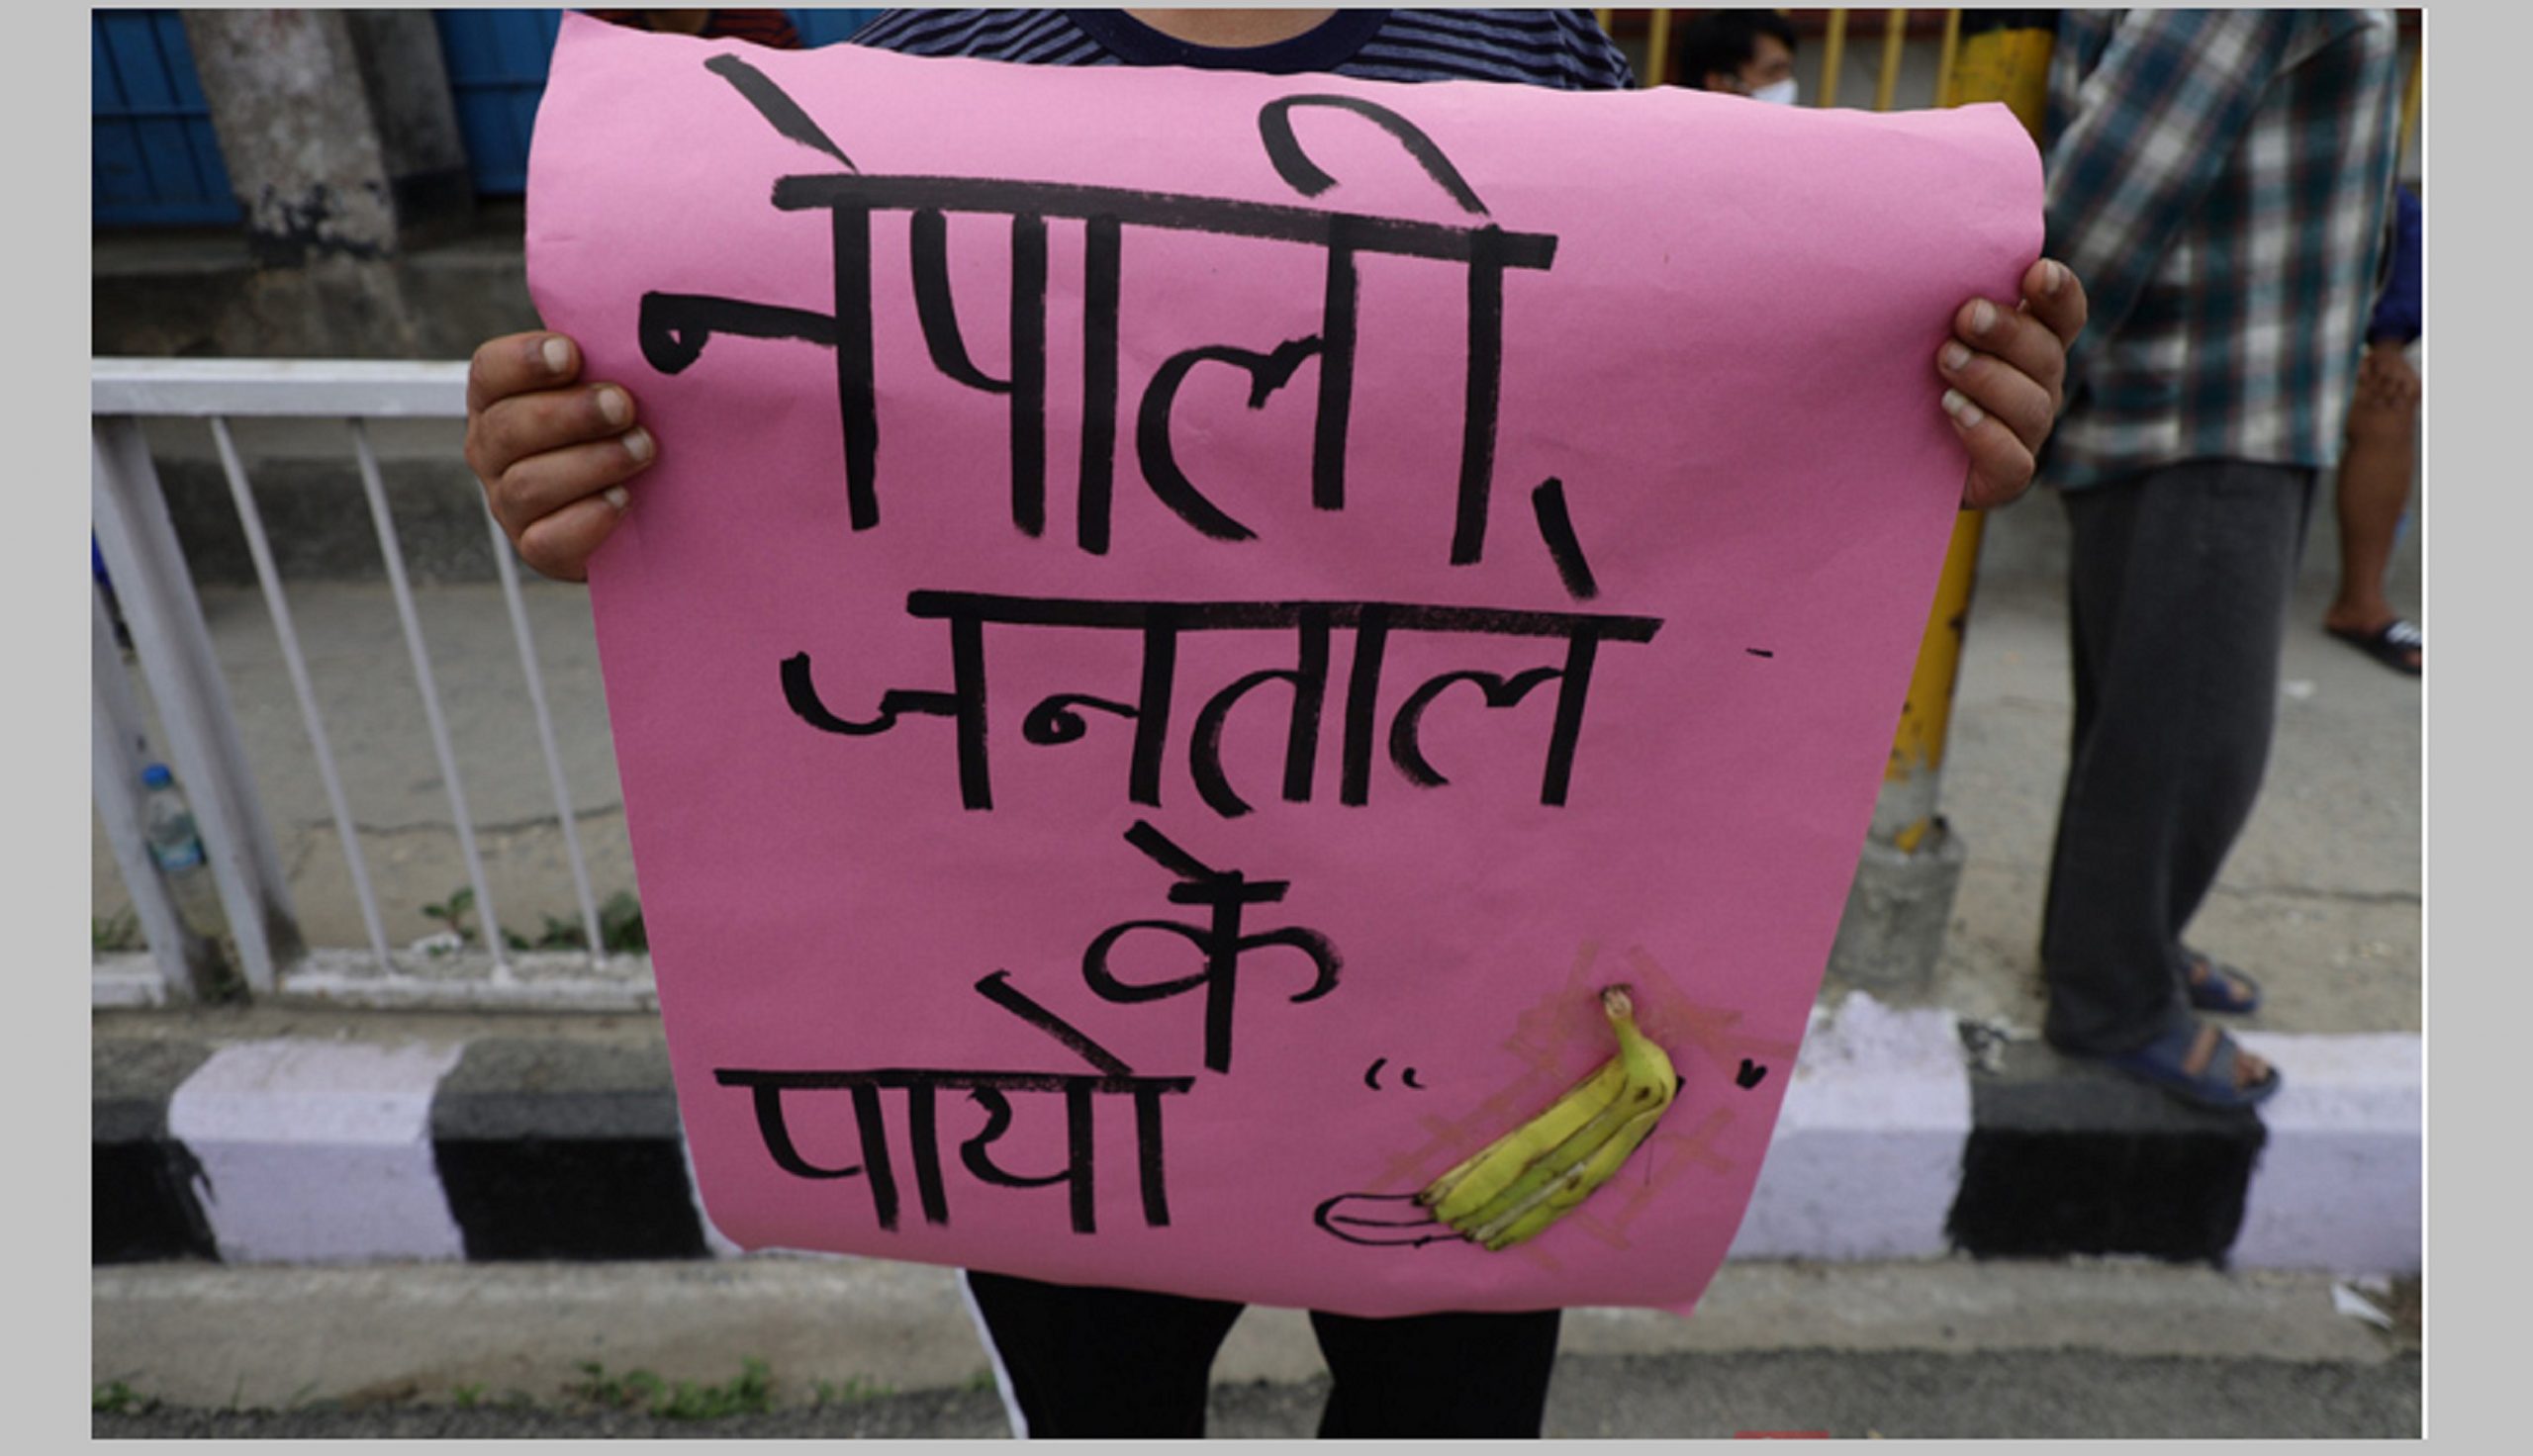 नेपाली
जनताले
के
पायो “ "